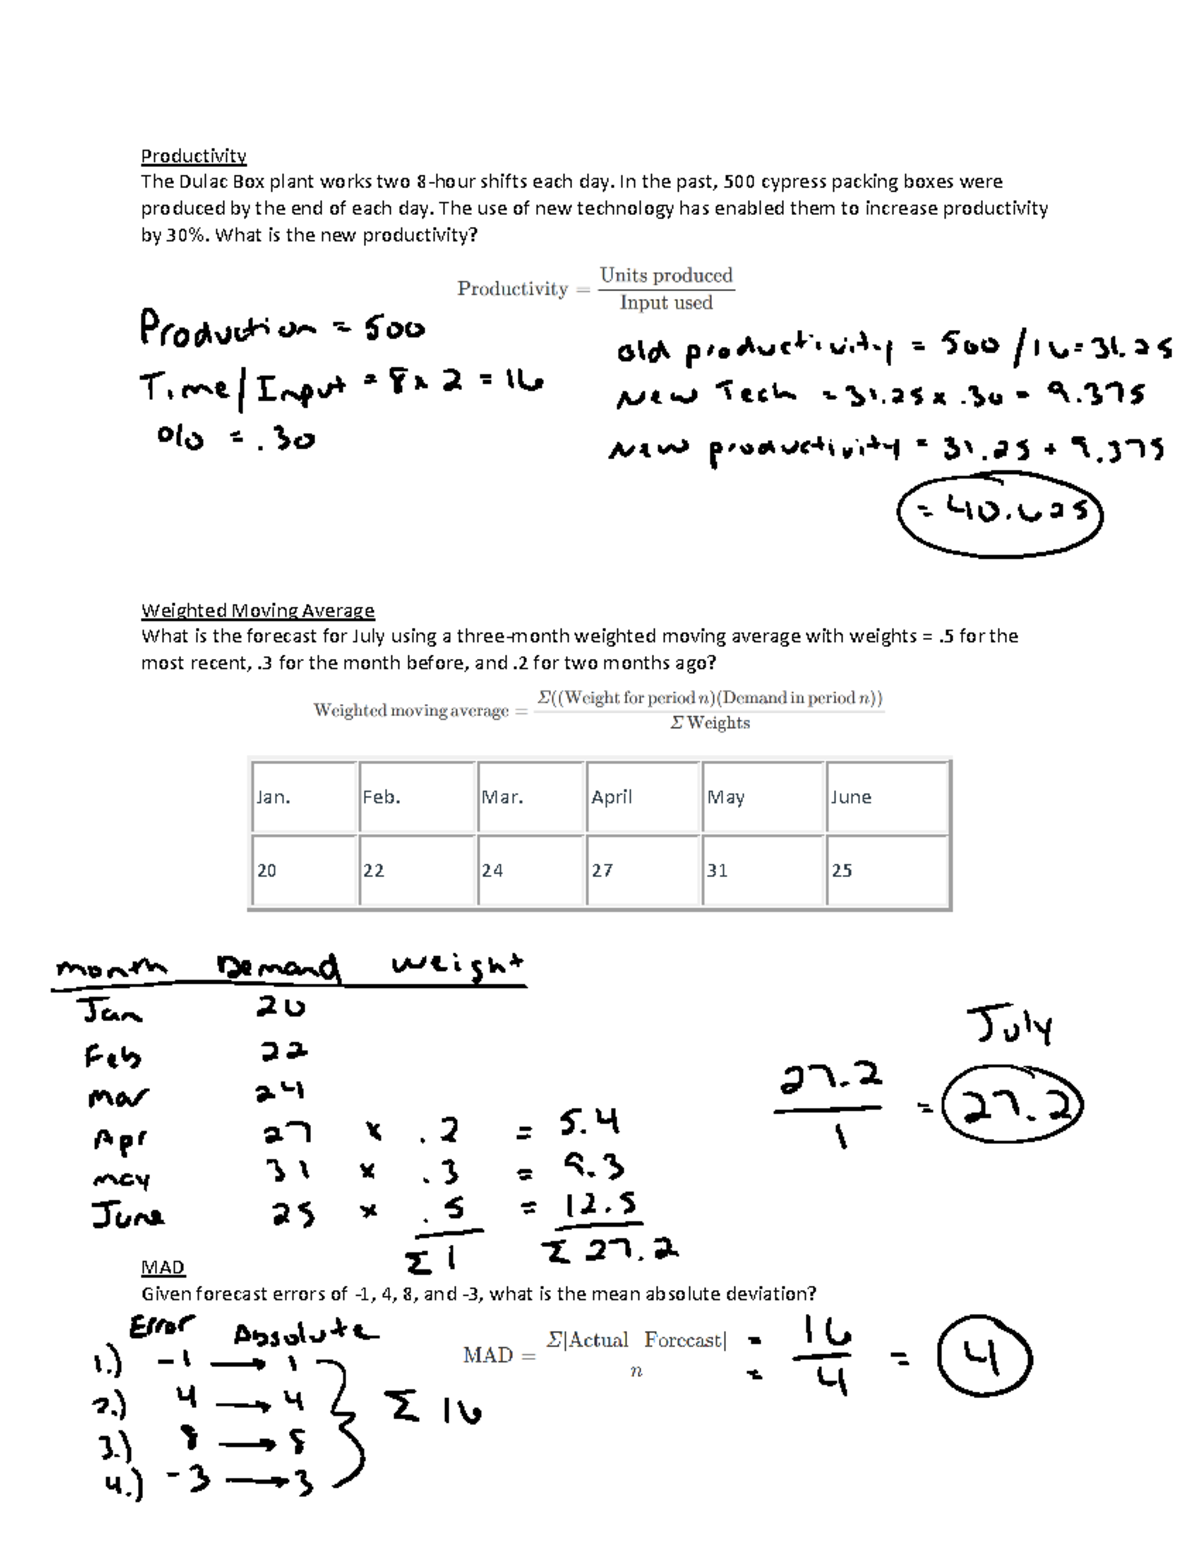 Productivity
The Dulac Box plant works two 8-hour shifts each day. In the past, 500 cypress packing boxes were
produced by the end of each day. The use of new technology has enabled them to increase productivity
by 30%. What is the new productivity?
Productivity = Units produced / Input used
Production = 500
Time/Input = 8 x 2 = 16
% = .30
old productivity = 500 / 16 = 31.25
New Tech = 31.25 x .30 = 9.375
New productivity = 31.25 + 9.375
= 40.625
Weighted Moving Average
What is the forecast for July using a three-month weighted moving average with weights = .5 for the
most recent, .3 for the month before, and .2 for two months ago?
Weighted moving average = Σ((Weight for period n)(Demand in period n)) / Σ Weights
Jan. Feb. Mar. April May June
20 22 24 27 31 25
month Demand weight
Jan 20
Feb 22
mar 24
Apr 27 x .2 = 5.4
may 31 x .3 = 9.3
June 25 x .5 = 12.5
Σ 1 Σ 27.2
July
27.2 / 1 = 27.2
MAD
Given forecast errors of -1, 4, 8, and -3, what is the mean absolute deviation?
Error Absolute
1.) -1 → 1
2.) 4 → 4
3.) 8 → 8
4.) -3 → 3
Σ 16
MAD = Σ|Actual Forecast| / n = 16 / 4 = 4